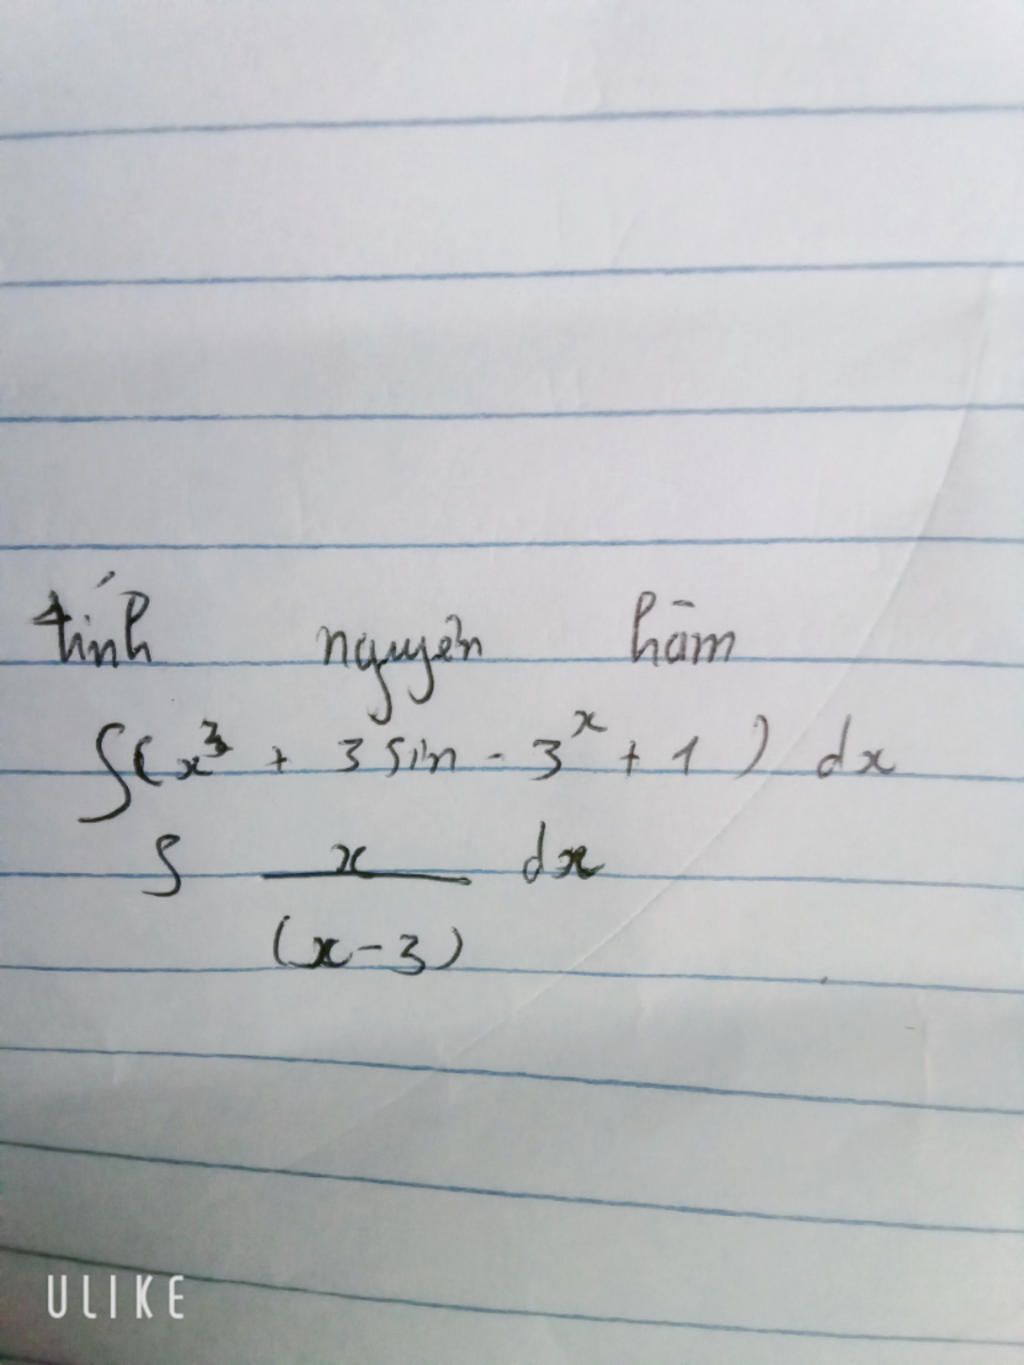 tính nguyên hàm
∫(x³ + 3 sin - 3ˣ + 1) dx
∫ x/(x-3) dx
ULIKE